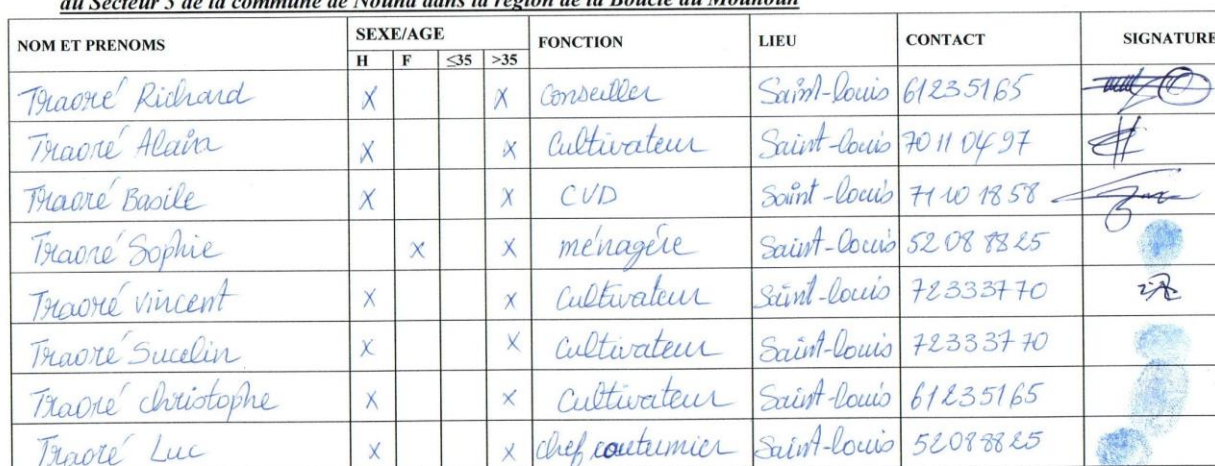 du Secteur 3 de la commune de Nouna dans la région de la Boucle du Mouhoun
NOM ET PRENOMS SEXE/AGE FONCTION LIEU CONTACT SIGNATURE
H F ≤35 >35
Traoré Richard X X Conseiller Saint-Louis 61235165
Traoré Alain X X Cultivateur Saint-Louis 70 11 04 97
Traoré Basile X X CVD Saint-Louis 71 10 18 58
Traoré Sophie X X ménagère Saint-Louis 52 08 88 25
Traoré vincent X X Cultivateur Saint-Louis 72333770
Traoré Sucelin X X Cultivateur Saint-Louis 72333770
Traoré christophe X X Cultivateur Saint-Louis 61235165
Traoré Luc X X chef coutumier Saint-Louis 52088825